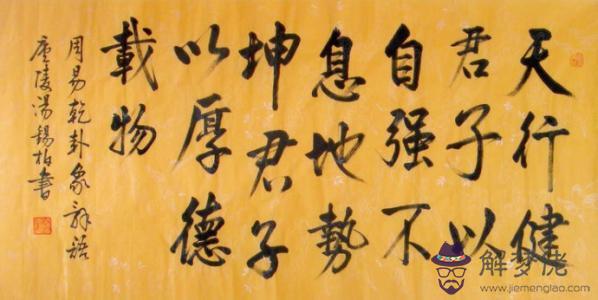 天行健
君子以
自强不
息地勢
坤君子
以厚德
載物
周易乾卦象辞語
庐陵湯錫柏書
解梦佬
www.jiemenglao.com